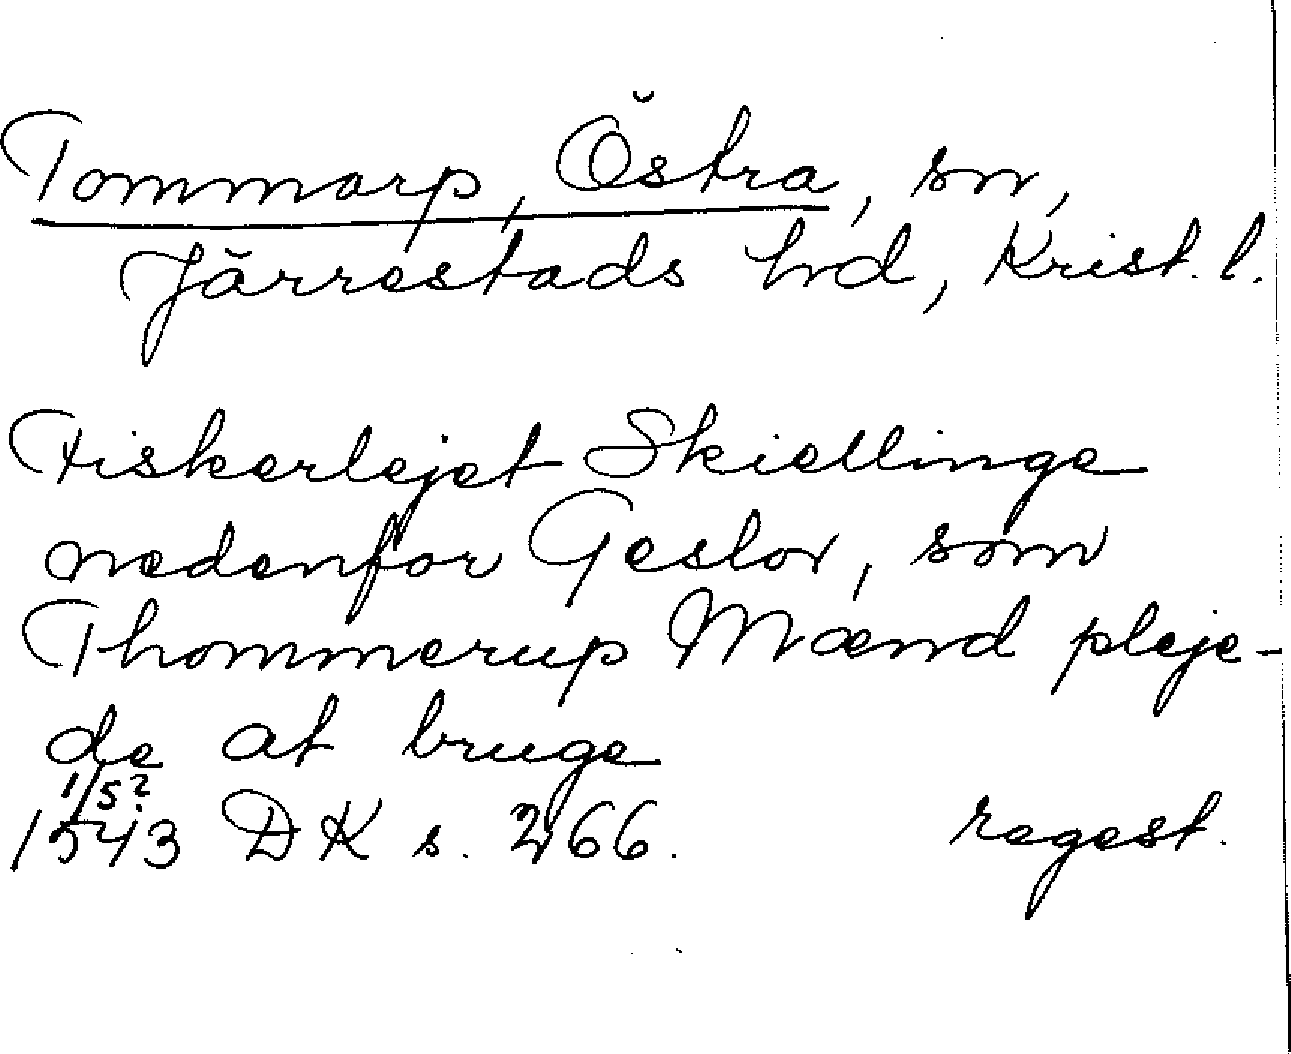 Tommarp, Östra, sn,
Järrestads hd, Krist. l.
Fiskerlejet Skiellinge
nedenfor Geslov, som
Thommerup Mænd pleje-
de at bruge
1/5?
1543 DK s. 266. regest.